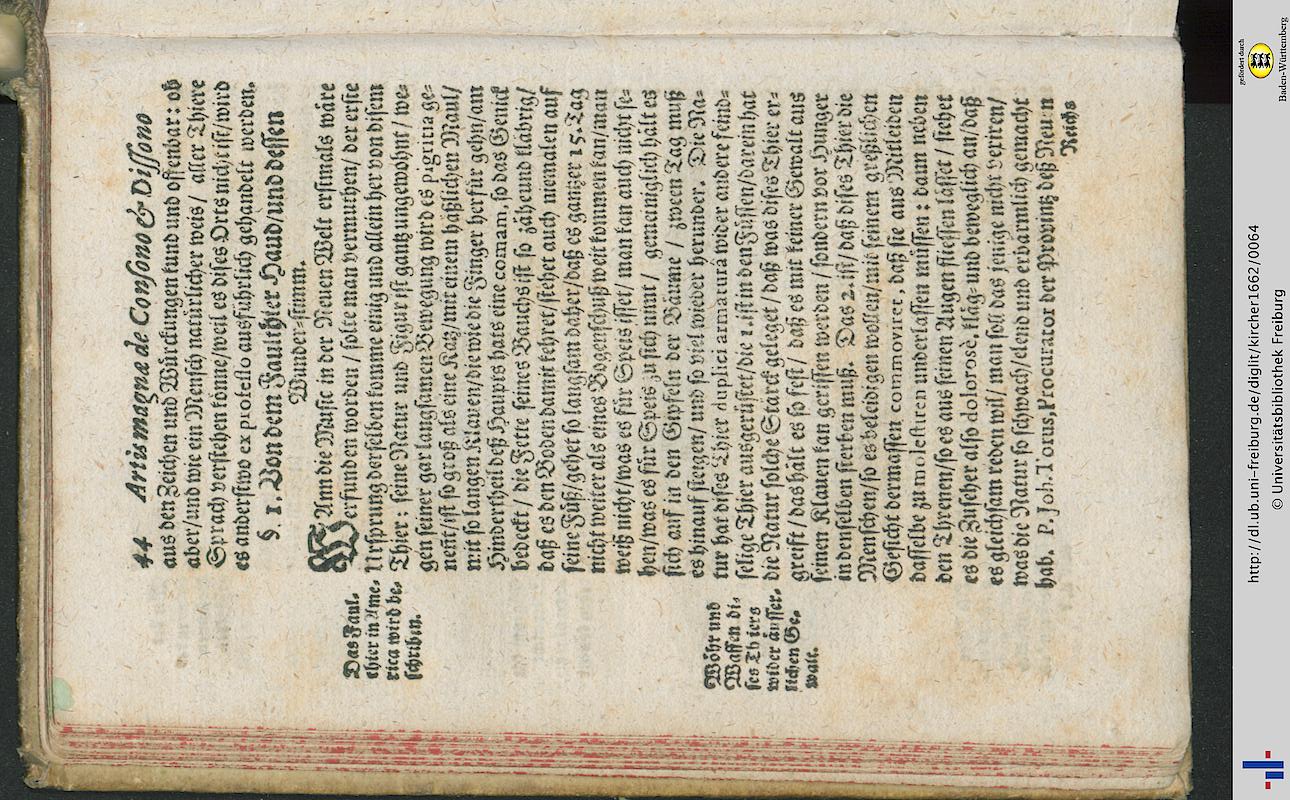 44 Artis magnæ de Consono & Dissono
aus den Zeichen und Würckungen kund und offenbar: ob
aber/und wie ein Mensch natürlicher weis/ aller Thiere
Sprach verstehen könne/weil es dises Orts nicht ist/wird
es anderstwo ex professo ausführlich gehandelt werden.
§. 1. Von dem Faulthier Haud/und dessen
Wunder-stimm.
WAnn die Music in der Neuen Welt erstmals wäre
erfunden worden / solte man vermuthen/ der erste
Ursprung derselben komme einig und allein her von disem
Thier: seine Natur und Figur ist gantz ungewohnt / we-
gen seiner gar langsamen Bewegung wird es pigritia ge-
neñt/ist so groß als eine Katz/mit einem häßlichen Maul/
mit so langen Klauen/die wie die Finger herfür gehn/am
Hindertheil deß Haupts hats eine comam, so das Genick
bedeckt/ die Fette seines Bauchs ist so zähe und kläbrig/
daß es den Boden damit kehret/stehet auch niemalen auf
seine Füß/gehet so langsam daher/daß es gantzer 15. Tag
nicht weiter als eines Bogenschuß weit kommen kan/man
weiß nicht/was es für Speis isset/ man kan auch nicht se-
hen/was es für Speis zu sich nimt / gemeiniglich hält es
sich auf in den Gipfeln der Bäume / zween Tag muß
es hinauf steigen/ und so viel wieder herunder. Die Na-
tur hat dises Thier duplici armaturâ wider andere feind-
selige Thier ausgerüstet/die 1. ist in den Füssen/darein hat
die Natur solche Starck geleget / daß was dises Thier er-
greifft / das hält es so fest / daß es mit keiner Gewalt aus
seinen Klauen kan gerissen werden / sondern vor Hunger
in denselben sterben muß. Das 2. ist / daß dises Thier die
Menschen/so es beleidigen wollen/mit seinem greßlichen
Gesicht dermassen commoviret, daß sie aus Mitleiden
dasselbe zu molestiren underlassen müssen: dann neben
den Threnen/so es aus seinen Augen fliessen lässet / sichet
es die Zuseher also dolorosè, kläg- und beweglich an/daß
es gleichsam reden wil/ man soll das jenige nicht veriren/
was die Natur so schwach/elend und erbärmlich gemacht
hab. P. Joh. Torus, Procurator der Provintz deß Neuen
Reichs
Das Faul-
thier in Ame-
rica wird be-
schriben.
Wöhr und
Waffen di-
ses Thiers
wider äusser-
lichen Ge-
walt.
http://dl.ub.uni-freiburg.de/diglit/kircher1662/0064
© Universitätsbibliothek Freiburg
gefördert durch
Baden-Württemberg